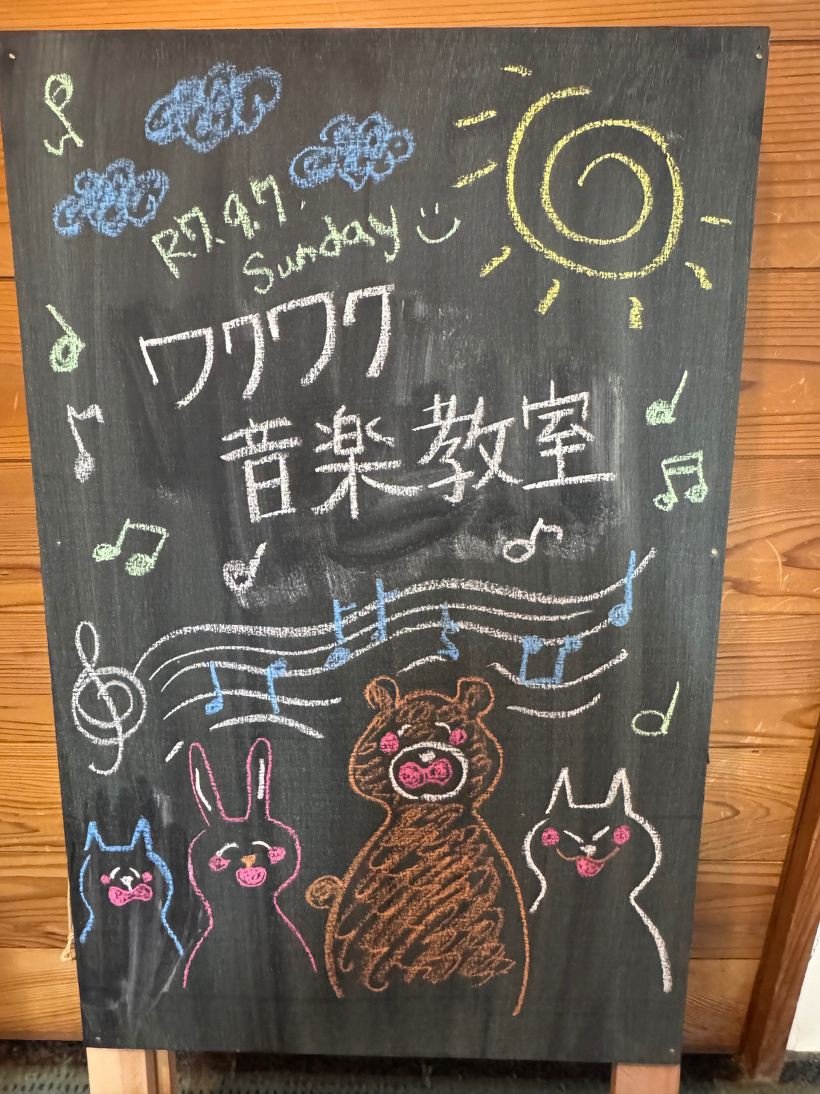 R7.9.7
Sunday
ワクワク
音楽教室